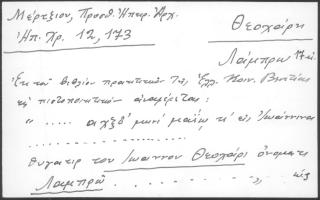 Μέρτζιον, Προσθ. Ηπειρ. Αρχ.
Ηπ. Χρ. 12, 173
Θεοχάρη
Λάμπρω 17 αι.
Εκ του βιβλίου πρακτικών της Ελλ. Κοιν. Βενετίας
πιστοποιητικών αναφέρεται:
" ..... αχξδ' μηνί μαΐω κ' εις Ιωάννινα
θυγατηρ του Ιωαννου Θεοχάρι ονοματι
Λαμπρῶ . . . . . . . . . . . . . "